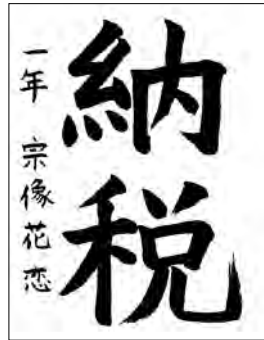 納税
一年 宗像花恋